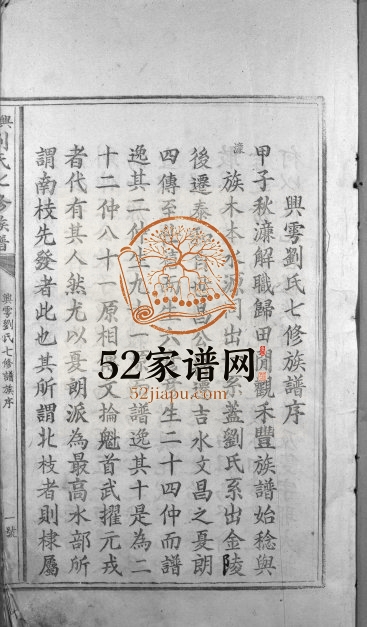 興雩劉氏七修族譜序
甲子秋濂解職歸田間觀禾豐族譜始稔與
濂族木本水源同出 系蓋劉氏系出金陵
後遷泰 世昌公 遷吉水文昌之憂朗
四傳至 生六 生二十四仲而譜
逸其二仲生九 一 譜逸其十是為二
十二仲八十一原相 文掄魁首武擢元戎
者代有其人然尤以憂朗派為最高水部所
謂南枝先發者此也其所謂北枝者則棣屬
興劉氏七修族譜
興雩劉氏七修譜族序
一號
52家谱网
52jiapu.com